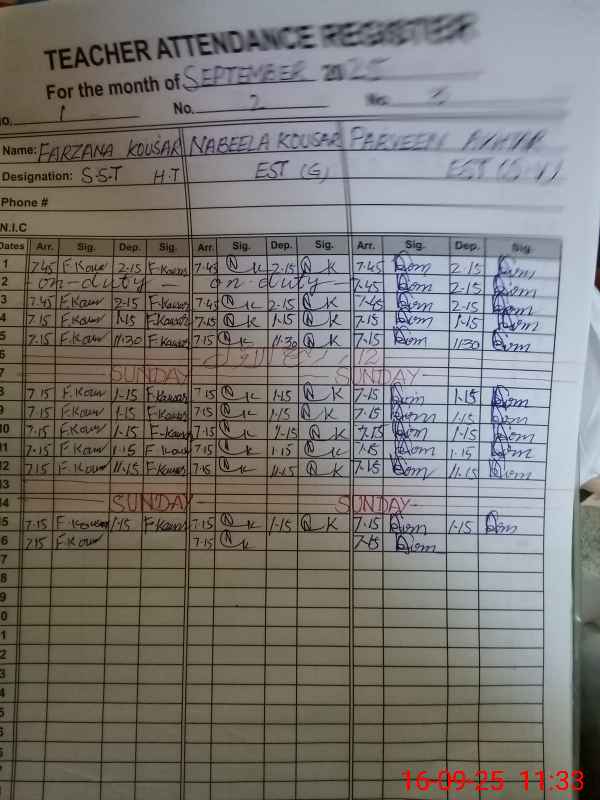 TEACHER ATTENDANCE REGISTER
For the month of SEPTEMBER 2025
No. 1 No. 2 No. 3
Name: FARZANA KOUSAR NABEELA KOUSAR PARVEEN
Designation: S.S.T H.T EST (G)
Phone #
N.I.C
Dates Arr. Sig. Dep. Sig. Arr. Sig. Dep. Sig. Arr. Sig. Dep. Sig.
1 7.45 F.Kousar 2-15 F-Kousar 7.45 N K 2-15 N K 7.45 2-15
2 - on-duty - on-duty - 7.45 2-15
3 7.45 F.Kousar 2-15 F.Kousar 7.45 N K 2-15 N K 7.45 2-15
4 7.15 F.Kousar 1-15 F.Kousar 7.15 N K 1-15 N K 7.15 1-15
5 7.15 F.Kousar 11:30 F.Kousar 7.15 N K 11:30 N K 7.15 11:30
6 12
7 SUNDAY SUNDAY
8 7.15 F.Kousar 1-15 F.Kousar 7.15 N K 1-15 N K 7-15 1.15
9 7.15 F.Kousar 1-15 F.Kousar 7.15 N K 1-15 N K 7-15 1-15
10 7.15 F.Kousar 1-15 F-Kousar 7.15 N K 1-15 N K 7.15 1-15
11 7-15 F.Kousar 1.15 F Kousar 7.15 N K 1.15 N K 7.15 1.15
12 7.15 F.Kousar 11.15 F.Kousar 7.15 N K 11.15 N K 7.15 11.15
13
14 SUNDAY SUNDAY
15 7.15 F.Kousar 1.15 F.Kousar 7.15 N K 1-15 N K 7.15 1.15
6 7.15 F.Kousar 7.15 N K 7-15
7
8
9
0
1
2
3
4
5
6
16-09-25 11:33